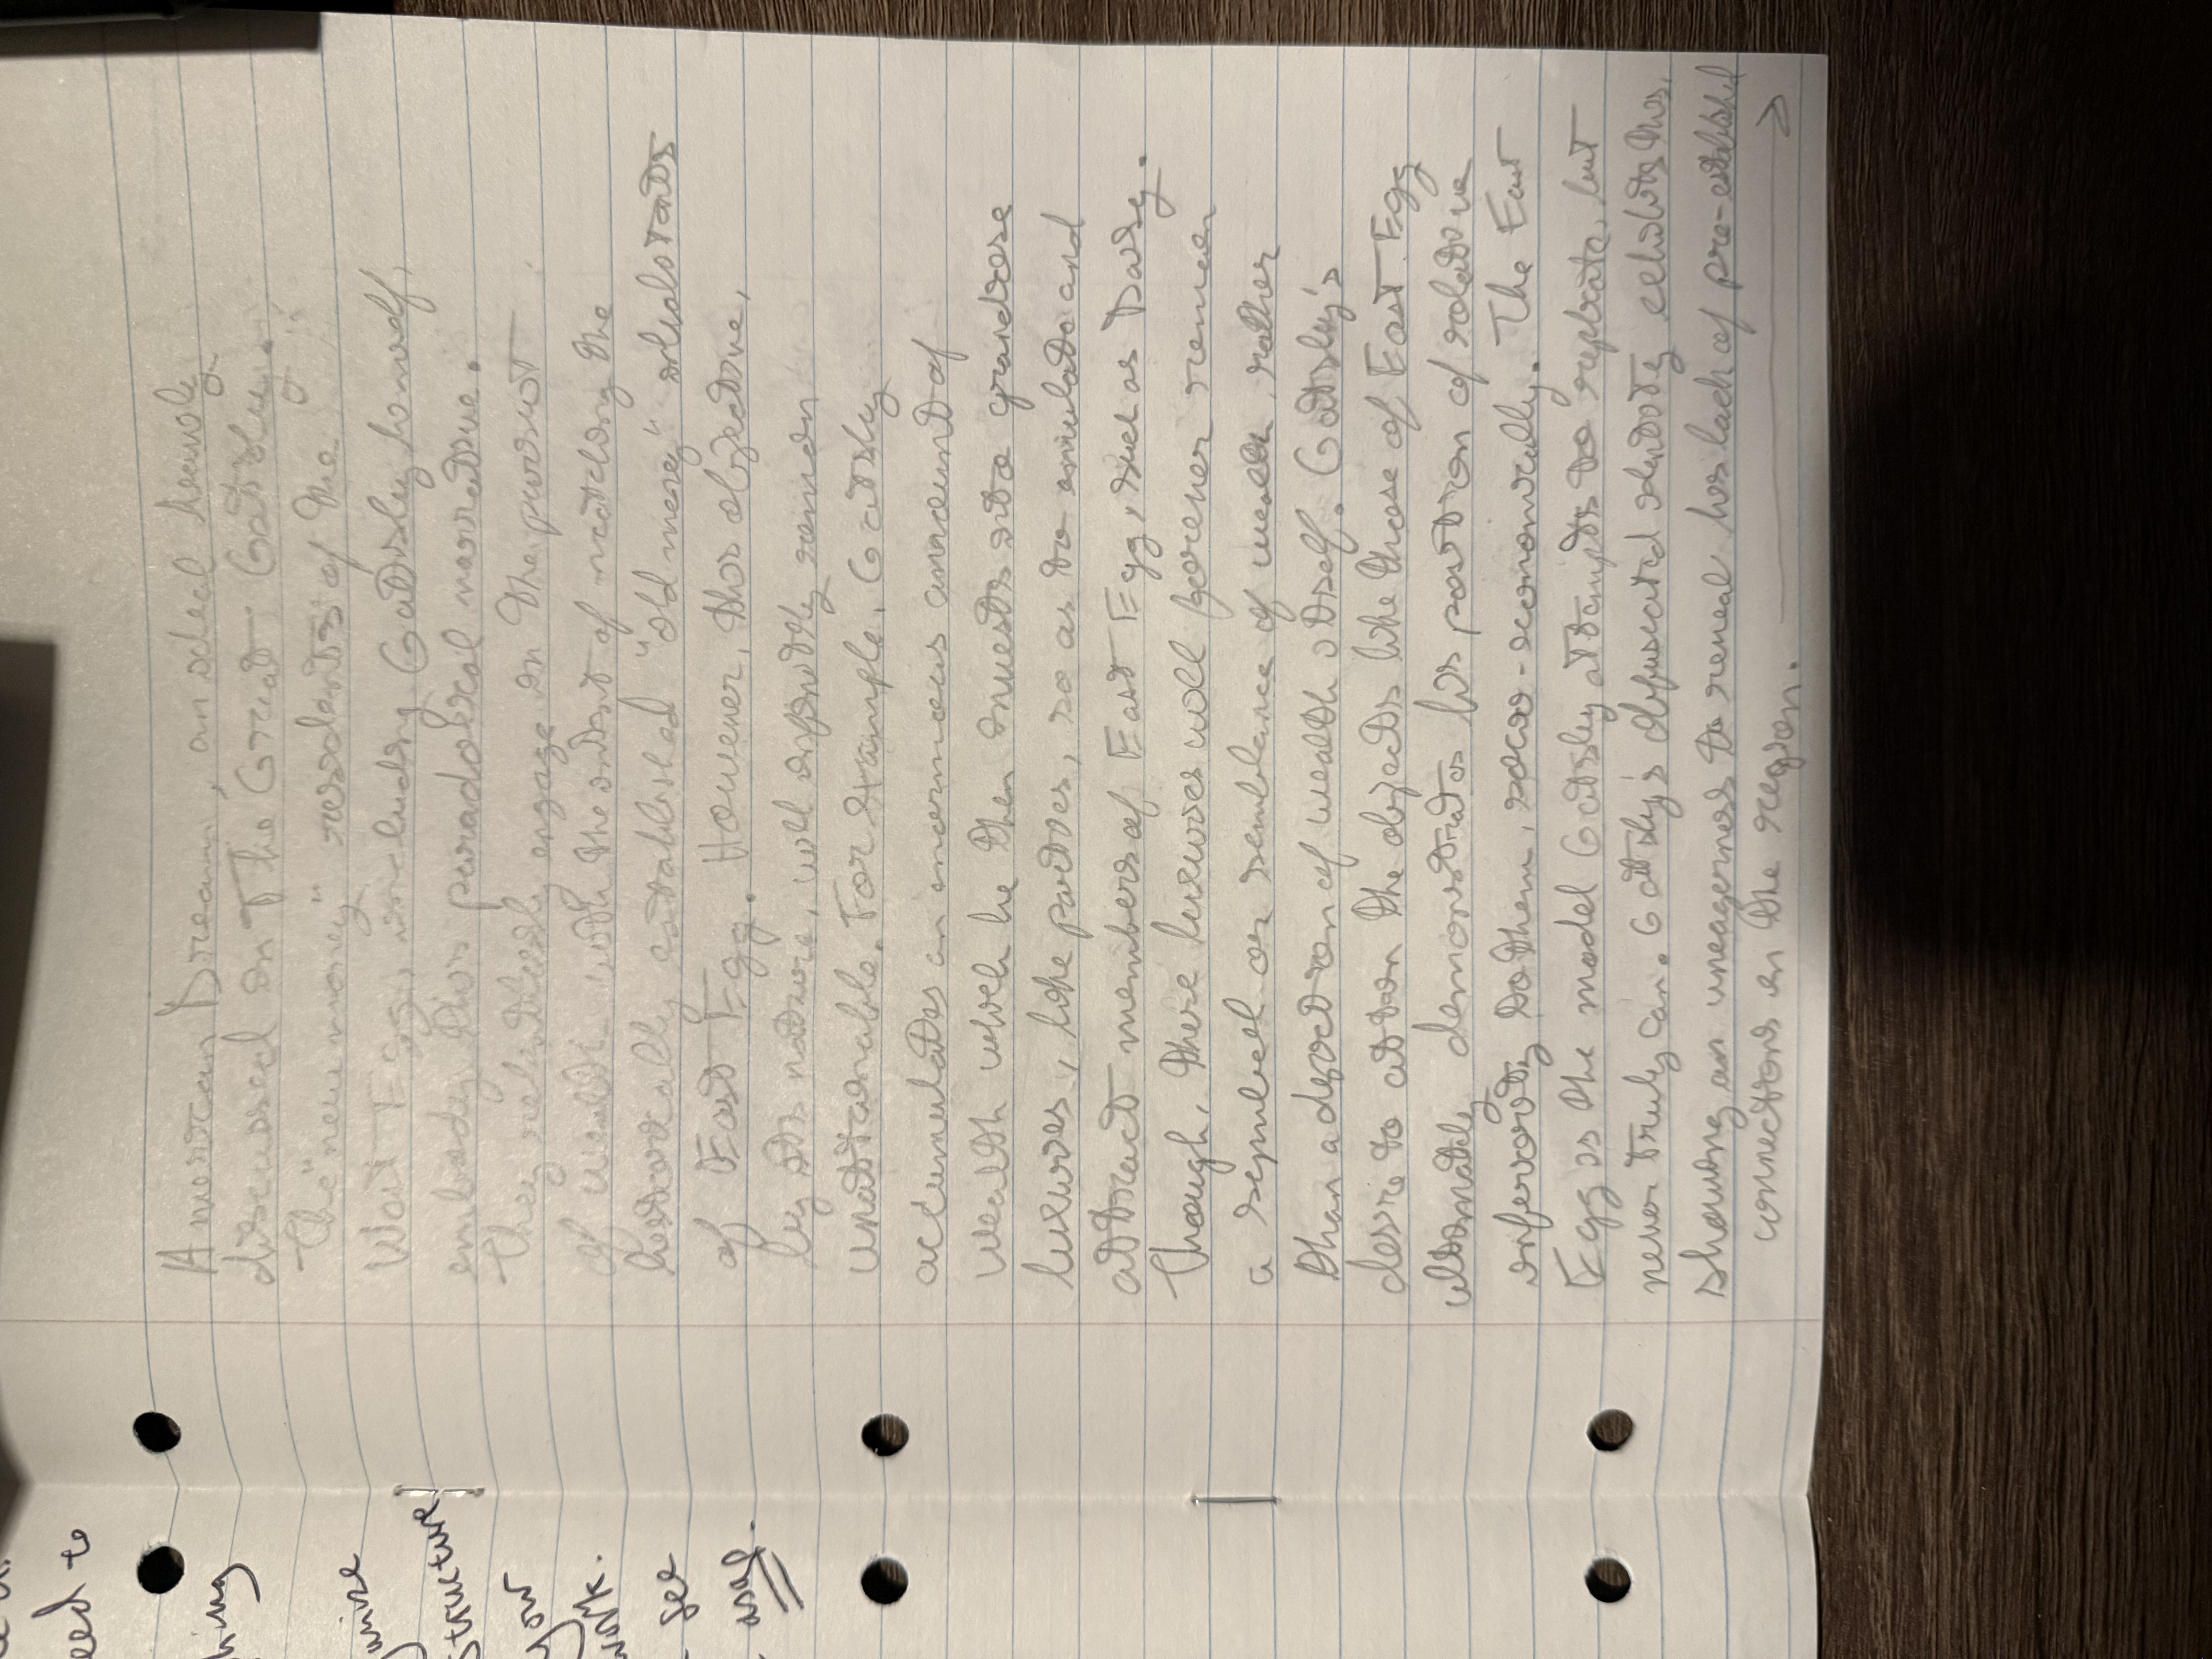 American Dream, an ideal heavily
discussed in The Great Gatsby.
The "new money" residents of the
West Egg, including Gatsby himself,
embody this paradoxical narrative.
They relentlessly engage in the pursuit
of wealth with the intent of matching the
historically established "old money" inhabitants
of East Egg. However, this objective,
by its nature, will infinitely remain
unattainable. For example, Gatsby
accumulates an enormous amount of
wealth which he then invests into grandiose
luxuries, like parties, so as to emulate and
attract members of East Egg, such as Daisy.
Though, these luxuries will forever remain
a symbol or semblance of wealth rather
than a depiction of wealth itself. Gatsby's
desire to attain the objects like those of East Egg
ultimately demonstrates his position of relative
inferiority to them, socio-economically. The East
Egg is the model Gatsby attempts to replicate, but
never truly can. Gatsby's obfuscated identity exhibits this,
showing an uneagerness to reveal his lack of pre-established
connections in the region.
eed to
hing
structure
your
work.
see